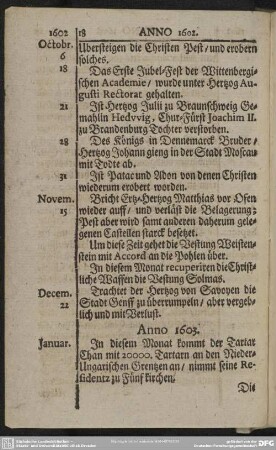 1602 18 ANNO 1602.
Octobr. Ubersteigen die Christen Pest/ und erobern
6 solches.
18 Das Erste Jubel-Fest der Wittenbergi-
schen Academie/ wurde unter Hertzog Au-
gusti Rectorat gehalten.
21 Ist Hertzog Julii zu Braunschweig Ge-
mahlin Hedvvig, Chur-Fürst Joachim II.
zu Brandenburg Tochter verstorben.
28 Des Königs in Dennemarck Bruder/
Hertzog Johann gieng in der Stadt Moscau
mit Todte ab.
31 Ist Patac und Adon von denen Christen
wiederum erobert worden.
Novem. Bricht Ertz-Hertzog Matthias vor Ofen
15 wieder auff/ und verläst die Belagerung:
Pest aber wird samt anderen daherum gele-
genen Castellen starck besetzt.
Um diese Zeit gehet die Vestung Weisten-
stein mit Accord an die Pohlen über.
In diesem Monat recuperiren die Christ-
liche Waffen die Vestung Solmas.
Decem. Trachtet der Hertzog von Savoyen die
22 Stadt Genff zu überrumpeln/ aber vergeb-
lich und mit Verlust.
Anno 1603.
Januar. In diesem Monat kommt der Tartar
Chan mit 20000. Tartarn an den Nieder-
Ungarischen Grentzen an/ nimmt seine Re-
sidentz zu Fünfkirchen.
Die